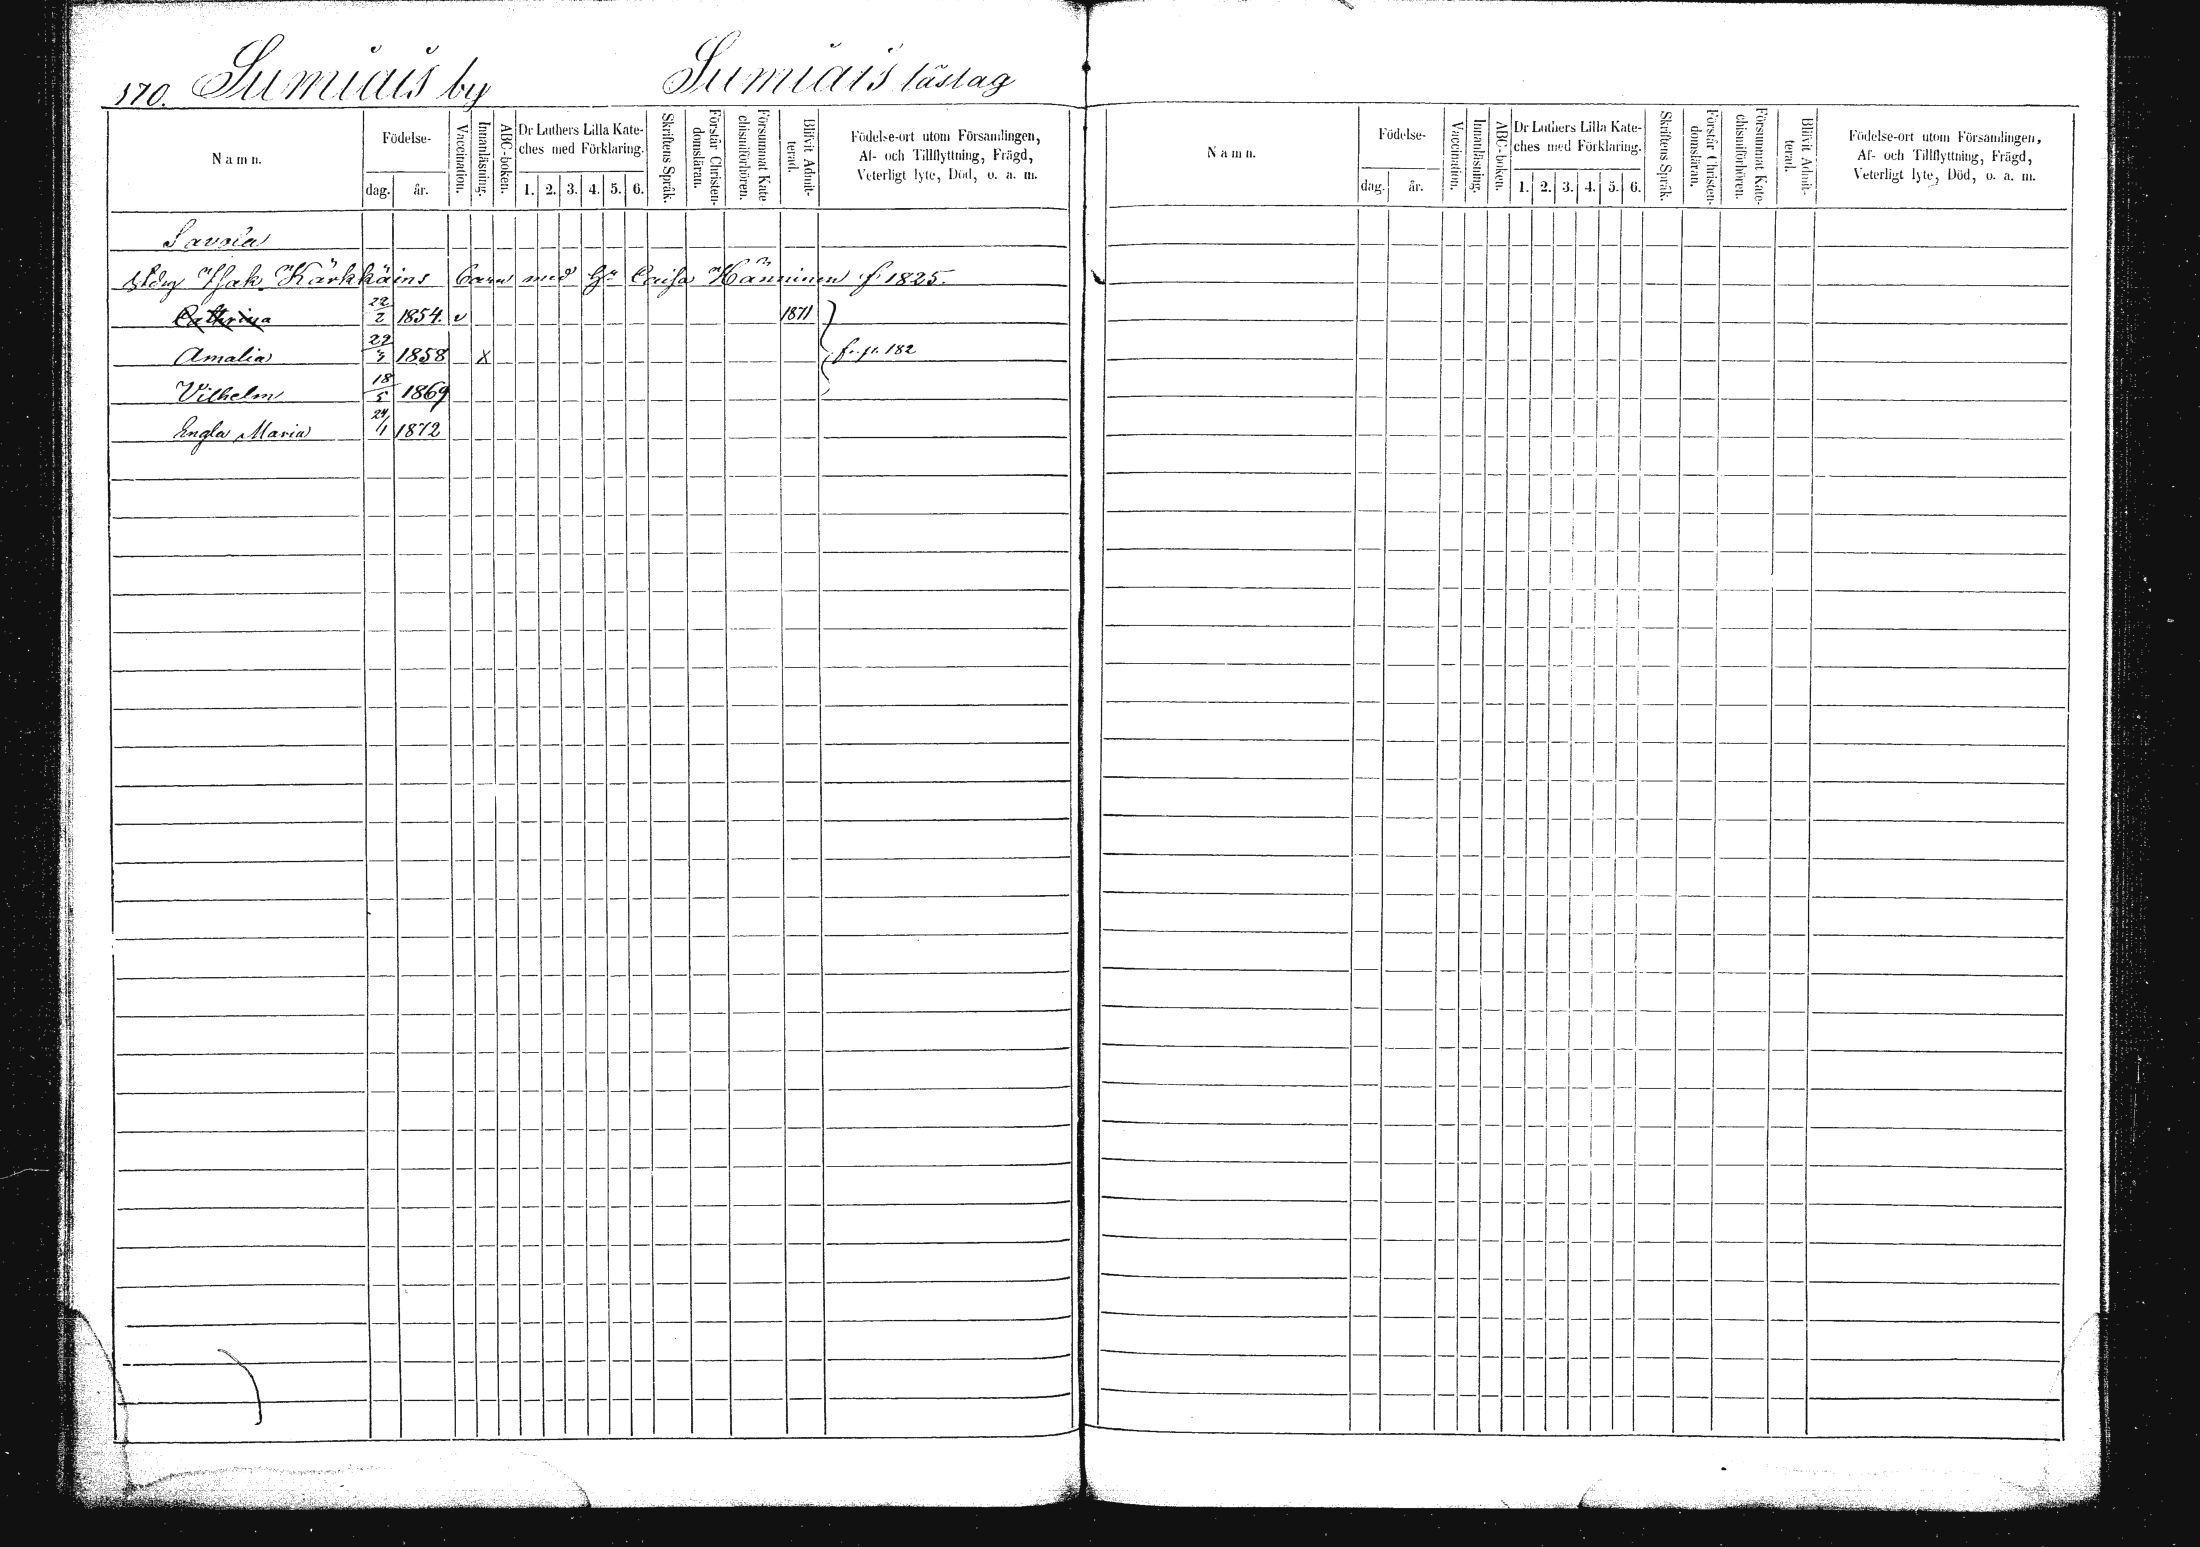 170. Sumiais by Sumiais läslag
Namn.
Födelse-
dag. år.
Vaccination.
Innanläsning.
ABC-boken.
Dr Luthers Lilla Kate-
ches med Förklaring.
1. 2. 3. 4. 5. 6.
Skriftens Språk.
Förstår Christen-
domsläran.
Försummat Kate-
chismiförhören.
Blifvit Admit-
terad.
Födelse-ort utom Församlingen,
Af- och Tillflyttning, Frägd,
Veterligt lyte, Död, o. a. m.
Savola
Isak Kärkkäins barn med Caisa Hänninen f. 1825.
Cathrina 22/2 1854. v 1871
Amalia 29/3 1858 X fr. p. 182
Vilhelm 18/5 1869
Engla Maria 24/1 1872
Namn.
Födelse-
dag. år.
Vaccination.
Innanläsning.
ABC-boken.
Dr Luthers Lilla Kate-
ches med Förklaring.
1. 2. 3. 4. 5. 6.
Skriftens Språk.
Förstår Christen-
domsläran.
Försummat Kate-
chismiförhören.
Blifvit Admit-
terad.
Födelse-ort utom Församlingen,
Af- och Tillflyttning, Frägd,
Veterligt lyte, Död, o. a. m.